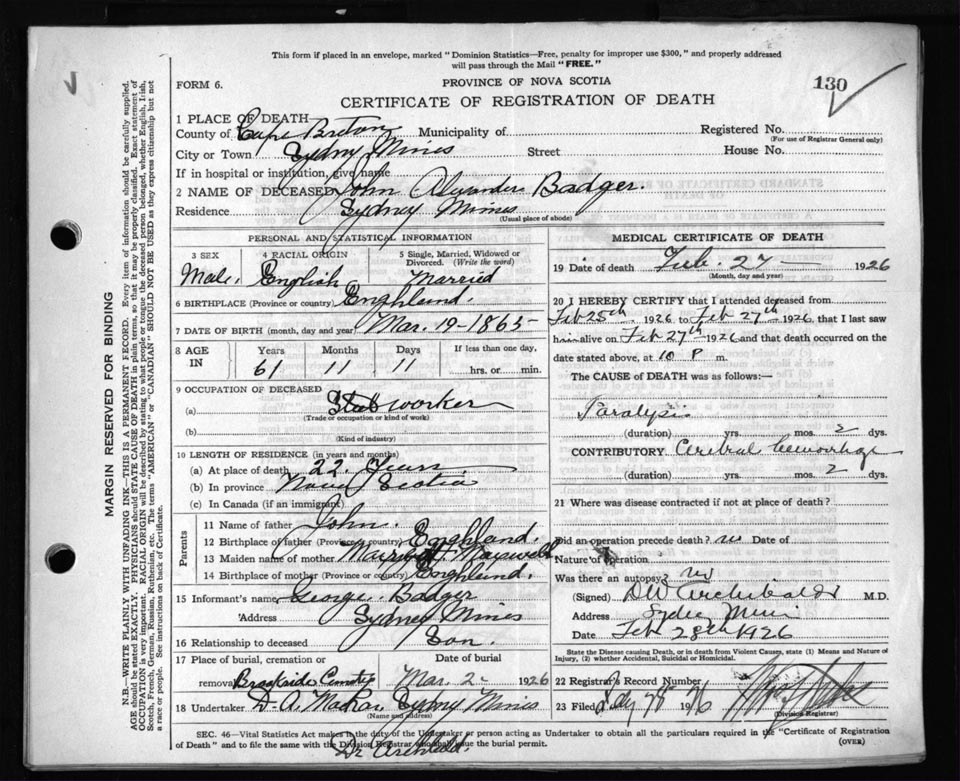 This form if placed in an envelope, marked "Dominion Statistics—Free, penalty for improper use $300," and properly addressed
will pass through the Mail "FREE."
FORM 6.
PROVINCE OF NOVA SCOTIA
130
CERTIFICATE OF REGISTRATION OF DEATH
1 PLACE OF DEATH
County of Cape Breton Municipality of Registered No.
(For use of Registrar General only)
City or Town Sydny Mines Street House No.
If in hospital or institution, give name
2 NAME OF DECEASED John Alexander Badger.
Residence Sydney Mines
(Usual place of abode)
PERSONAL AND STATISTICAL INFORMATION
3 SEX 4 RACIAL ORIGIN 5 Single, Married, Widowed or Divorced. (Write the word)
Male. English Married
6 BIRTHPLACE (Province or country) Enghland.
7 DATE OF BIRTH (month, day and year) Mar. 19-1865-
8 AGE IN Years Months Days If less than one day,
61 11 11 hrs. or min.
9 OCCUPATION OF DECEASED
(a) worker
(Trade or occupation or kind of work)
(b)
(Kind of industry)
10 LENGTH OF RESIDENCE (in years and months)
(a) At place of death 22 Years
(b) In province Nova Scotia
(c) In Canada (if an immigrant)
Parents
11 Name of father John.
12 Birthplace of father (Province or country) Enghland.
13 Maiden name of mother Maxwell
14 Birthplace of mother (Province or country) Enghland.
15 Informant's name George Badger
Address Sydney Mines
16 Relationship to deceased Son.
17 Place of burial, cremation or removal Date of burial
Brookside Mar. 2- 1926
18 Undertaker D. A. Sydney Mines
(Name and address)
MEDICAL CERTIFICATE OF DEATH
19 Date of death Feb. 27 1926
(Month, day and year)
20 I HEREBY CERTIFY that I attended deceased from
Feb 25th 1926 to Feb 27th 1926, that I last saw
him alive on Feb 27th 1926 and that death occurred on the
date stated above, at 10 P m.
The CAUSE of DEATH was as follows:—
Paralysis
(duration) yrs. mos. 2 dys.
CONTRIBUTORY. Cerebral
(duration) yrs. mos. 2 dys.
21 Where was disease contracted if not at place of death?
Did an operation precede death? no Date of
Nature of operation
Was there an autopsy? no
(Signed) DW Archibald M.D.
Address
Date Feb 28th 1926
State the Disease causing Death, or in death from Violent Causes, state (1) Means and Nature of Injury, (2) whether Accidental, Suicidal or Homicidal.
22 Registrar's Record Number
23 Filed
(Division Registrar)
SEC. 46—Vital Statistics Act makes it the duty of the Undertaker or person acting as Undertaker to obtain all the particulars required in the "Certificate of Registration
of Death" and to file the same with the Division Registrar who shall issue the burial permit.
(OVER)
Dr Archibald.
MARGIN RESERVED FOR BINDING
N.B.—WRITE PLAINLY WITH UNFADING INK—THIS IS A PERMANENT RECORD. Every item of information should be carefully supplied.
AGE should be stated EXACTLY. PHYSICIANS should STATE CAUSE OF DEATH in plain terms, so that it may be properly classified. Exact statement of
OCCUPATION is very important. RACIAL ORIGIN will be described by stating to what people or tongue the deceased person belonged, whether English, Irish,
Scotch, French, German, Russian, Ruthenian, etc. The terms "AMERICAN" or "CANADIAN" SHOULD NOT BE USED as they express citizenship but not
a race or people. See instructions on back of Certificate.